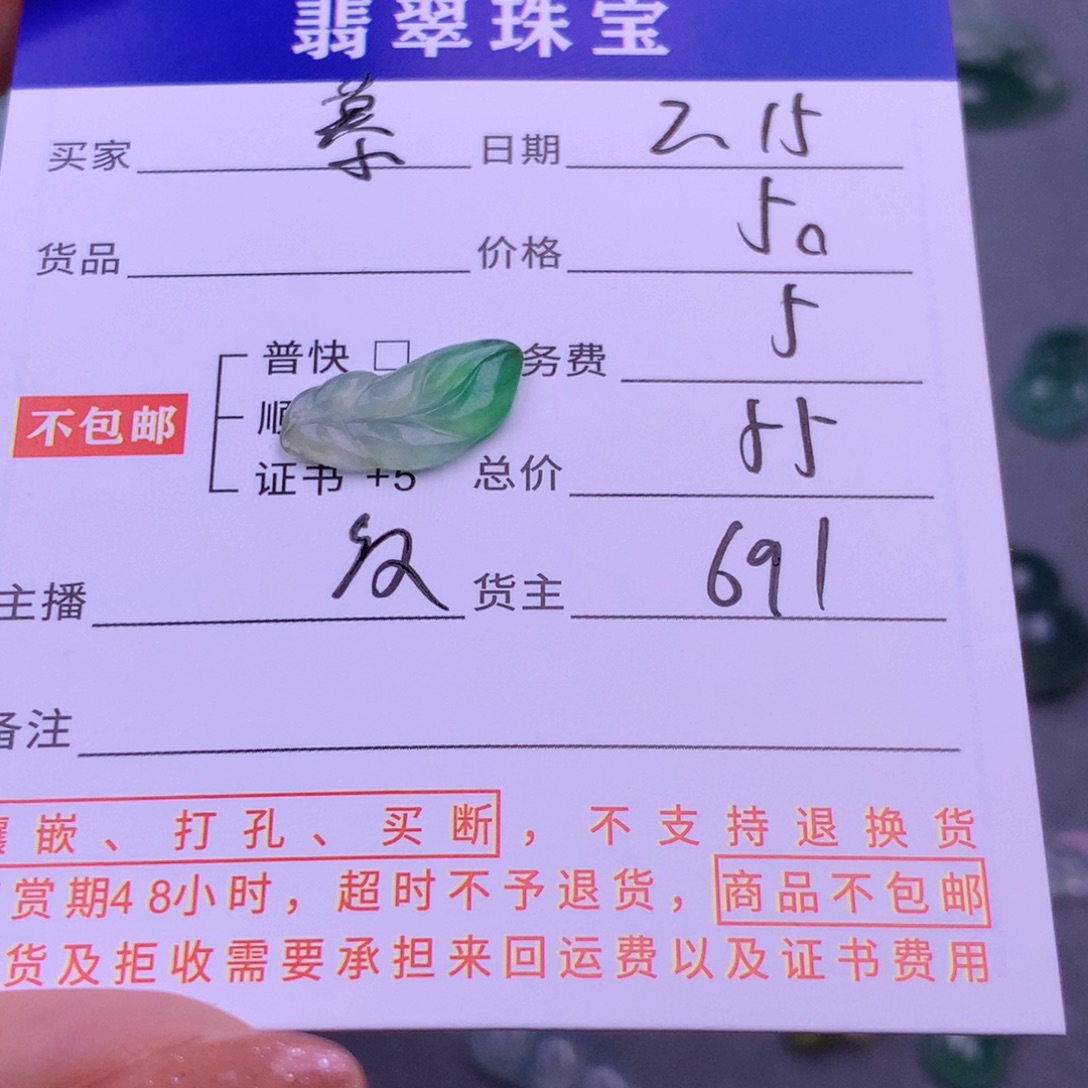 翡翠珠宝
买家 慕 日期 2 15
货品 价格 50
普快 务费 5
不包邮 顺
证书 +5 总价 55
主播 货主 691
备注
镶嵌、打孔、买断，不支持退换货
赏期48小时，超时不予退货，商品不包邮
货及拒收需要承担来回运费以及证书费用